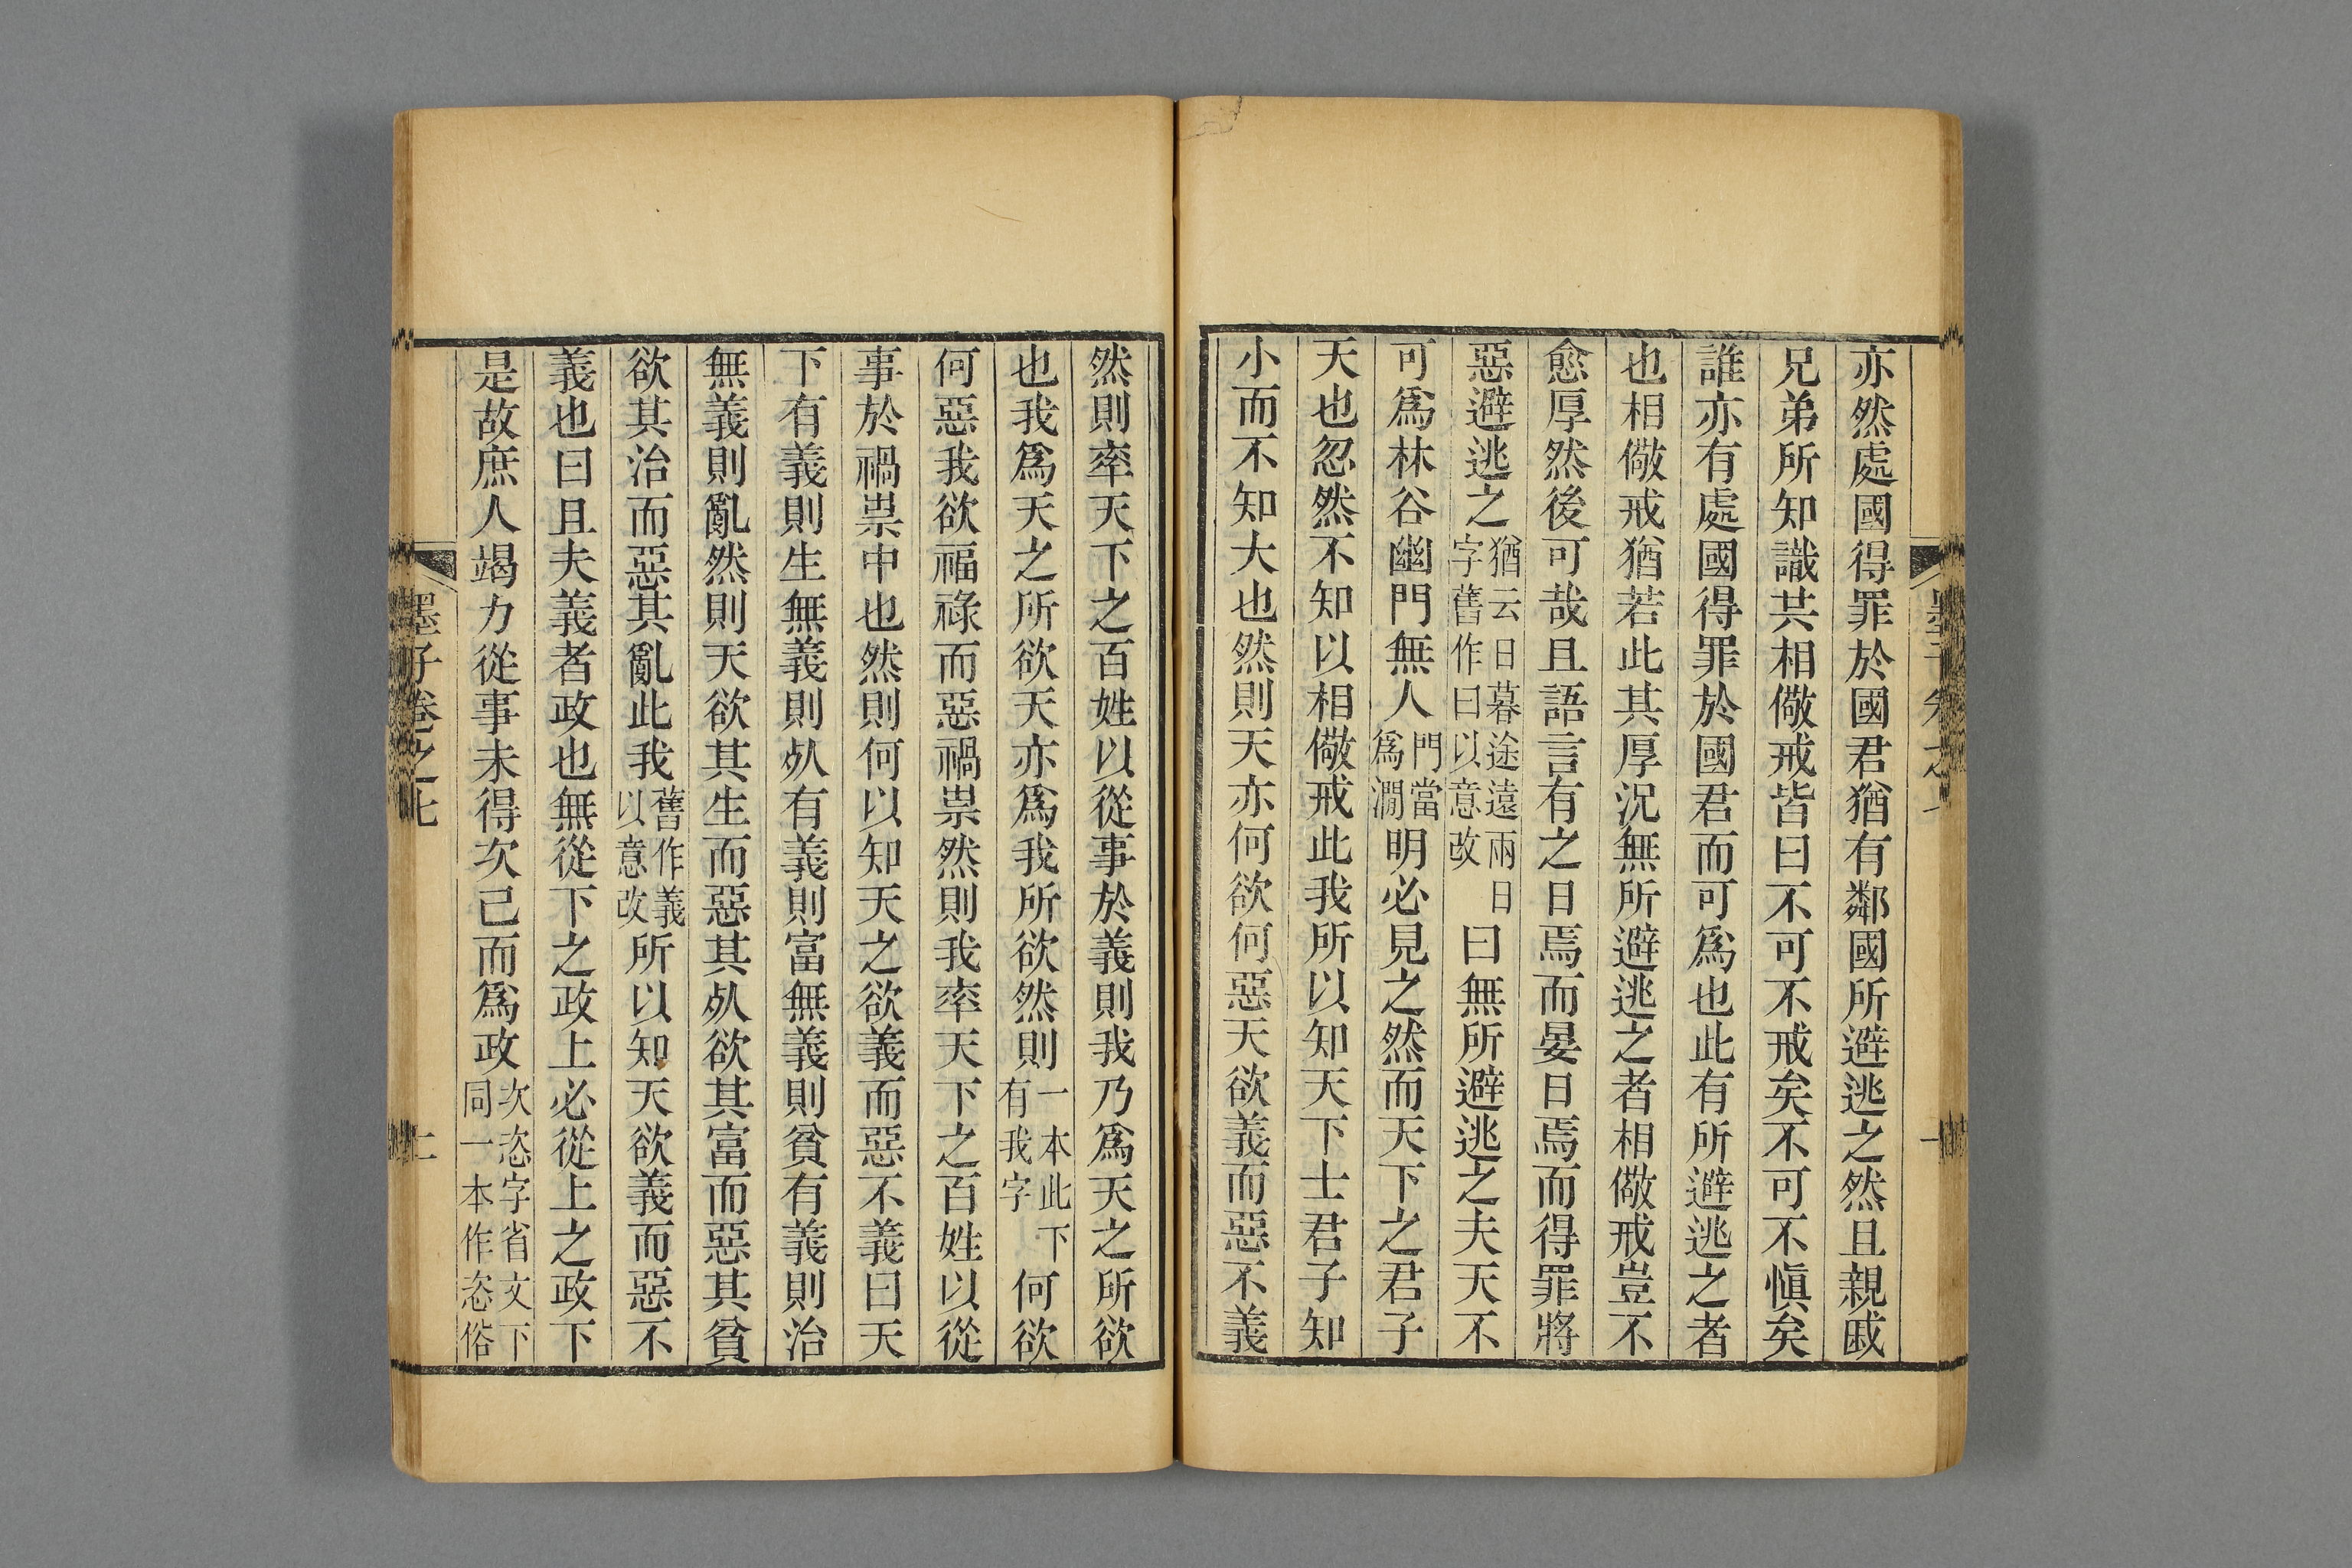 亦然處國得罪於國君猶有鄰國所避逃之然且親戚
兄弟所知識共相儆戒皆曰不可不戒矣不可不慎矣
誰亦有處國得罪於國君而可爲也此有所避逃之者
也相儆戒猶若此其厚況無所避逃之者相儆戒豈不
愈厚然後可哉且語言有之日焉而晏日焉而得罪將
惡避逃之猶云日暮途遠兩日字舊作曰以意改曰無所避逃之夫天不
可爲林谷幽門無人門當爲澗明必見之然而天下之君子
天也忽然不知以相儆戒此我所以知天下士君子知
小而不知大也然則天亦何欲何惡天欲義而惡不義
然則率天下之百姓以從事於義則我乃爲天之所欲
也我爲天之所欲天亦爲我所欲然則一本此下有我字何欲
何惡我欲福祿而惡禍祟然則我率天下之百姓以從
事於禍祟中也然則何以知天之欲義而惡不義曰天
下有義則生無義則𣦸有義則富無義則貧有義則治
無義則亂然則天欲其生而惡其𣦸欲其富而惡其貧
欲其治而惡其亂此我舊作義以意改所以知天欲義而惡不
義也曰且夫義者政也無從下之政上必從上之政下
是故庶人竭力從事未得次己而爲政次恣字省文下同一本作恣俗
墨子卷之七